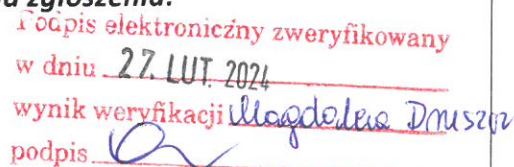 zgłoszenia:
Podpis elektroniczny zweryfikowany
w dniu 27. LUT. 2024
wynik weryfikacji Magdalena
podpis